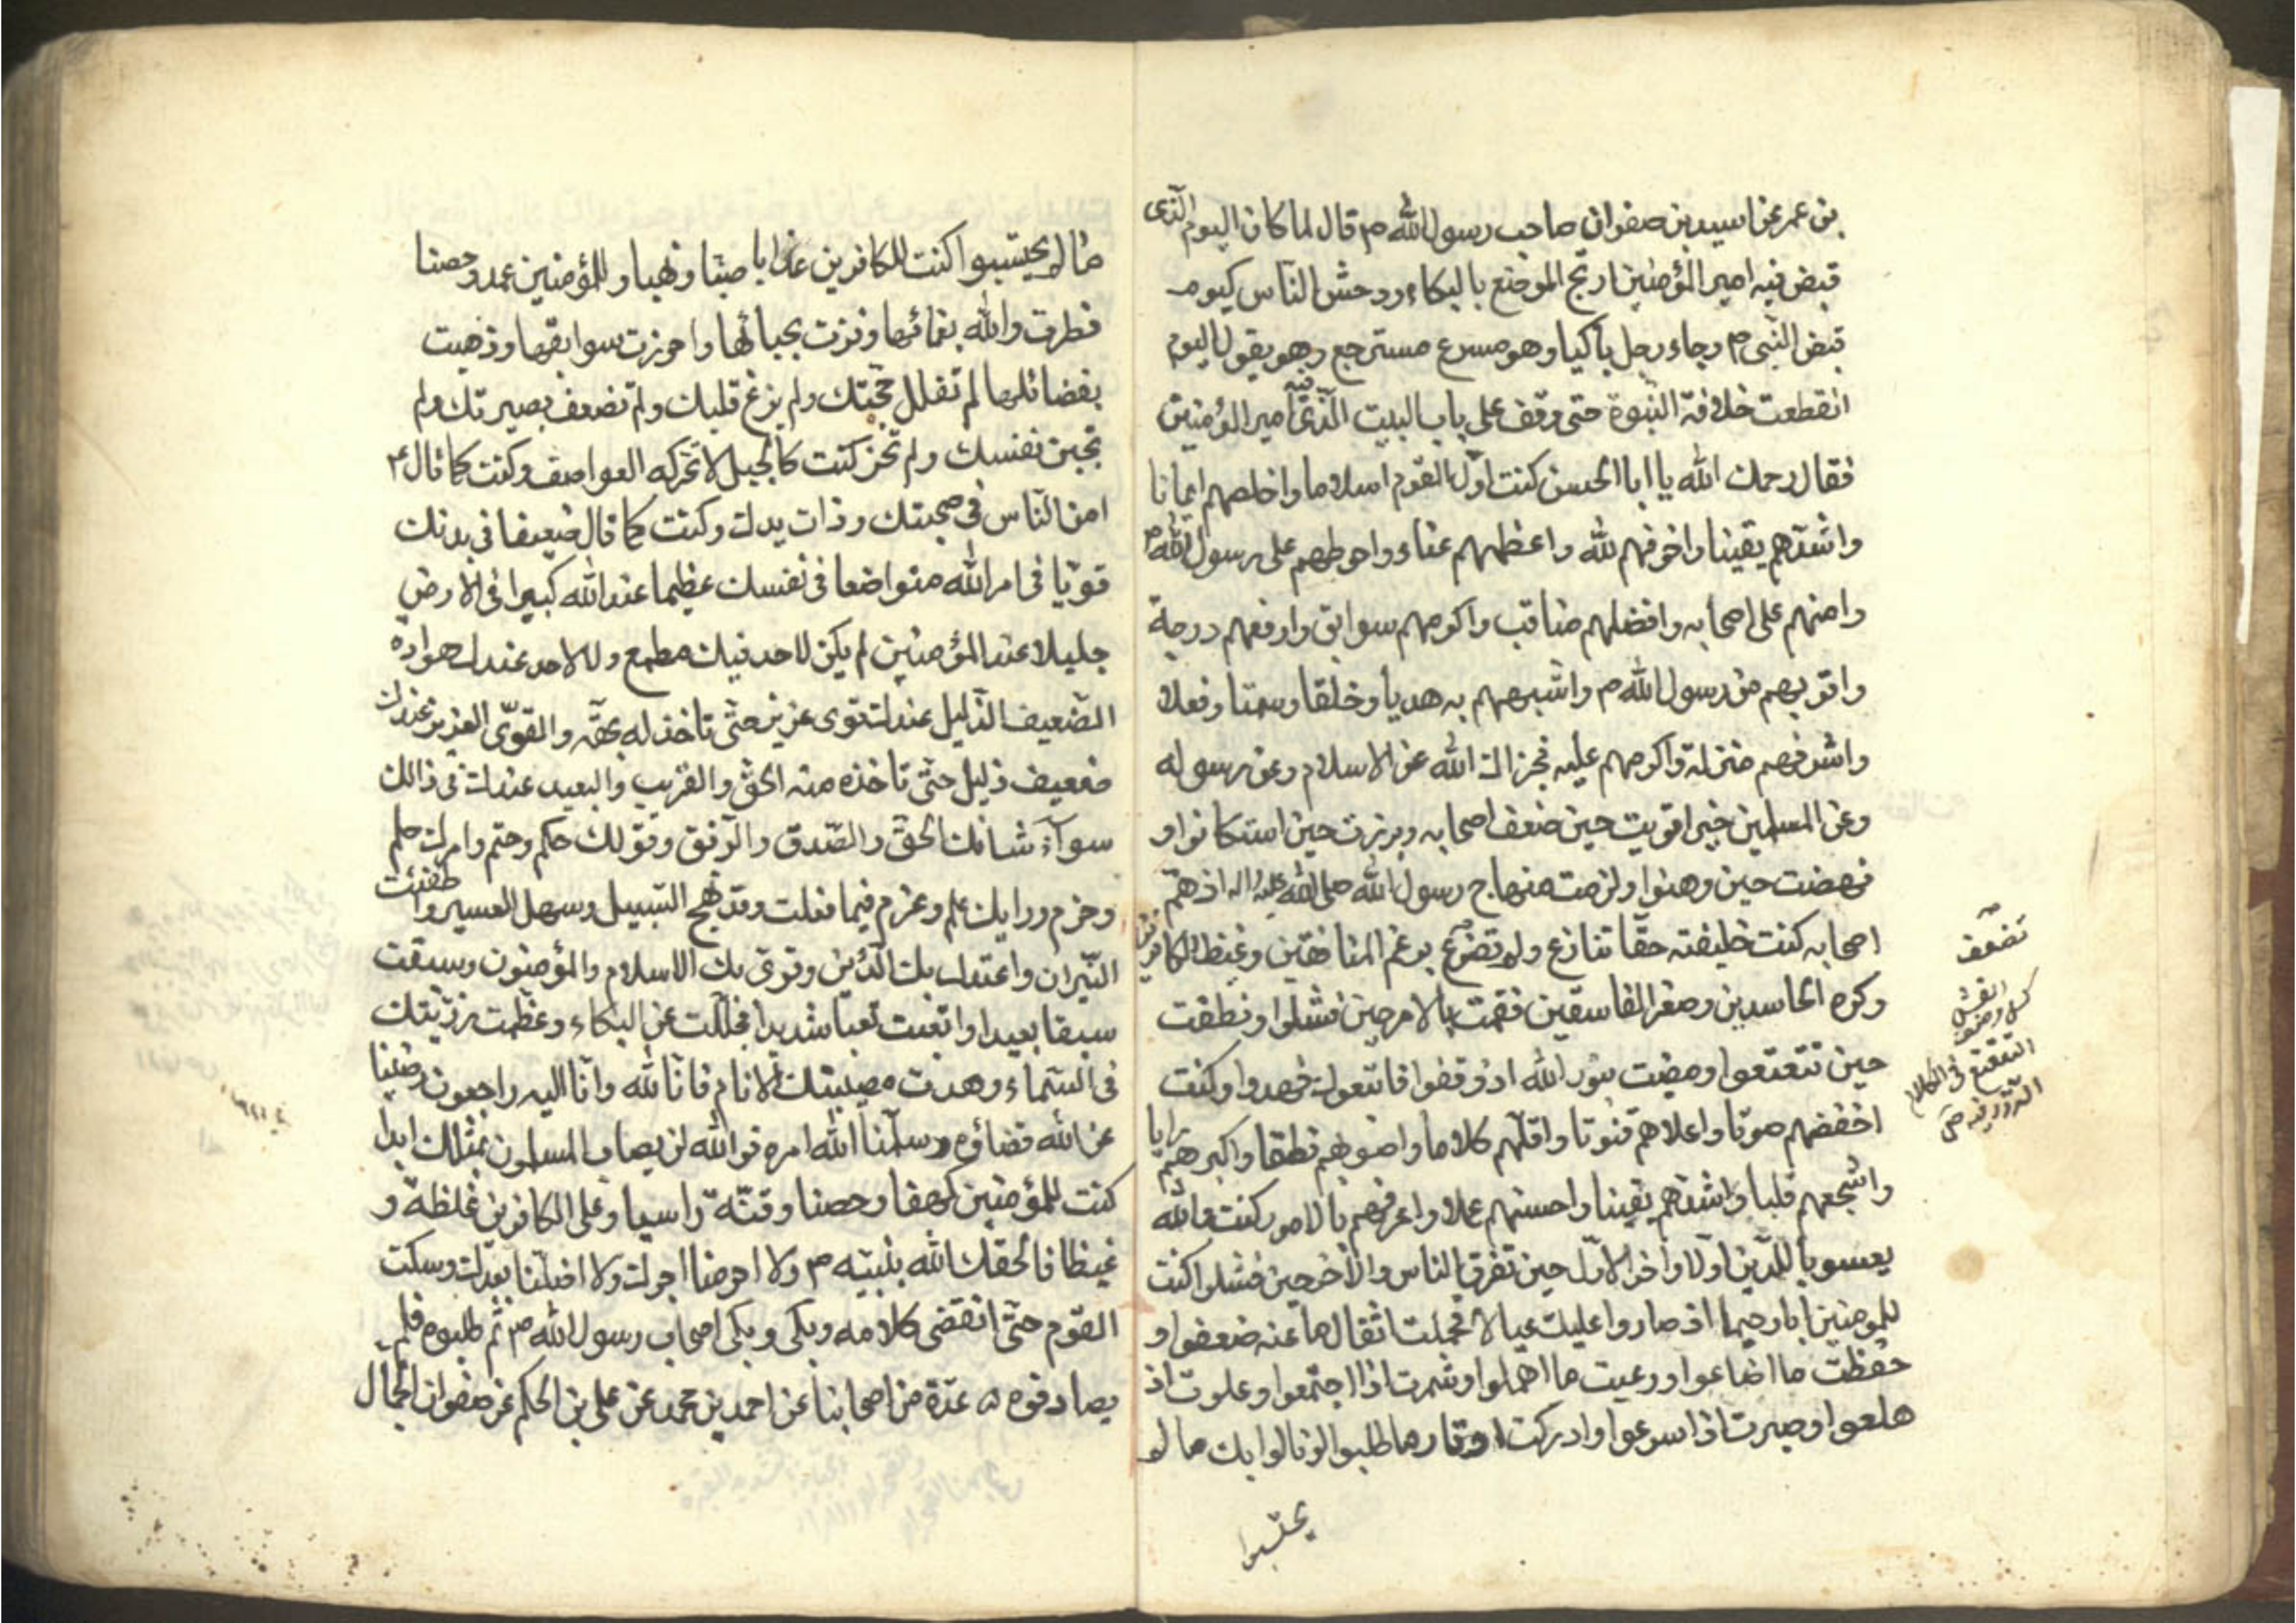 بن عمر عن اسيد بن صفوان صاحب رسول الله ص قال لما كان اليوم الذى
قبض فيه امير المؤمنين ارتج الموضع بالبكاء ودهش الناس كيوم
قبض النبى ص وجاء رجل باكيا وهو مسرع مسترجع وهو يقول اليوم
انقطعت خلافة النبوة حتى وقف على باب البيت الذى فيه امير المؤمنين
فقال رحمك الله يا ابا الحسن كنت اول القوم اسلاما واخلصهم ايمانا
واشدهم يقينا واخوفهم لله واعظمهم عناء واحوطهم على رسول الله ص
وامنهم على اصحابه وافضلهم مناقب واكرمهم سوابق وارفعهم درجة
واقربهم من رسول الله ص واشبههم به هديا وخلقا وسمتا وفعلا
واشرفهم منزلة واكرمهم عليه فجزاك الله عن الاسلام وعن رسوله
وعن المسلمين خيرا قويت حين ضعف اصحابه وبرزت حين استكانوا و
نهضت حين وهنوا ولزمت منهاج رسول الله صلى الله عليه واله اذ هم
اصحابه كنت خليفته حقا تنازع ولم تضرع برغم المنافقين وغيظ الكافرين
وكره الحاسدين وصغر الفاسقين فقمت بالامر حين فشلوا ونطقت
حين تتعتعوا ومضيت بنور الله اذ وقفوا فاتبعوك فهدوا وكنت
اخفضهم صوتا واعلاهم قنوتا واقلهم كلاما واصوبهم نطقا واكبرهم رايا
واشجعهم قلبا واشدهم يقينا واحسنهم عملا واعرفهم بالامور كنت والله
يعسوبا للدين اولا واخرا الاول حين تفرق الناس والاخر حين فشلوا كنت
للمومنين ابا رحيما اذ صاروا عليك عيالا فحملت اثقال ما عنه ضعفوا و
حفظت ما اضاعوا ورعيت ما اهملوا وشمرت اذا اجتمعوا وعلوت اذ
هلعوا وصبرت اذ اسرعوا وادركت اوتار ما طلبوا ونالوا بك ما لم
يحتسبوا
تضعف
الفشل
كسل وضعف
التعتع فى الكلام
التردد فيه ص
ما لم يحتسبوا كنت للكافرين عذابا صبا ونهبا وللمؤمنين عمد وحصنا
فطرت والله بنعمائها وفزت بحبائها واحرزت سوابقها وذهبت
بفضائلها لم تفلل حجتك ولم يزغ قلبك ولم تضعف بصيرتك ولم
تجبن نفسك ولم تخر كنت كالجبل لا تحركه العواصف وكنت كما قال ع
امن الناس فى صحبتك وذات يدك وكنت كما قال ضعيفا فى بدنك
قويا فى امر الله متواضعا فى نفسك عظيما عند الله كبيرا فى الارض
جليلا عند المؤمنين لم يكن لاحد فيك مطمع ولا لاحد عندك هوادة
الضعيف الذليل عندك قوى عزيز حتى تاخذ له بحقه والقوى العزيز عندك
ضعيف ذليل حتى تاخذه منه الحق والقريب والبعيد عندك فى ذالك
سوآء شانك الحق والصدق والرفق وقولك حكم وحتم وامرك حلم
وحزم ورايك علم وعزم فيما فعلت وقد نهج السبيل وسهل العسير واطفئت
النيران واعتدل بك الدين وقوى بك الاسلام والمؤمنون وسبقت
سبقا بعيدا واتعبت تعبا شديدا فجللت عن البكاء وعظمت رزيتك
فى السماء وهدت مصيبتك الانام فانا لله وانا اليه راجعون رضينا
عن الله قضاؤه وسلمنا الله امره فوالله لن يصاب المسلمون بمثلك ابدا
كنت للمؤمنين كهفا وحصنا وقنة راسيا وعلى الكافرين غلظة و
غيظا فالحقك الله بنبيه ص ولا احرمنا اجرك ولا اضلنا بعدك وسكت
القوم حتى انقضى كلامه وبكى وبكى اصحاب رسول الله ص ثم طلبوه فلم
يصادفوه عدة من اصحابنا عن احمد بن محمد عن على بن الحكم عن صفوان الجمال